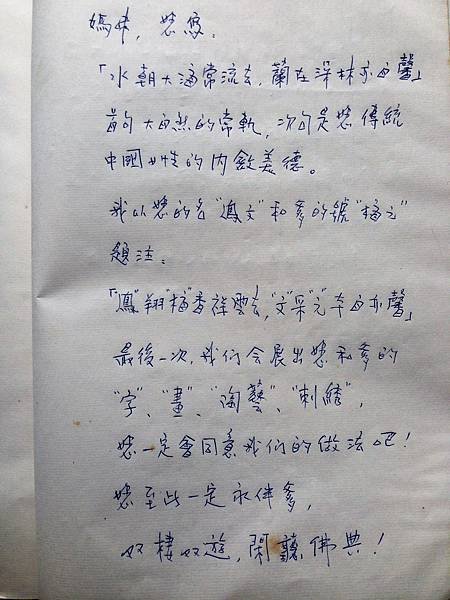 媽咪，您好：
「水朝大海常流去，蘭在深林亦自馨」
首句大自然的常軌，次句是您傳統
中國女性的內斂美德。
我以您的名“鳳文”和爹的號“梅元”
題注：
「“鳳”翔“梅”香祥雲去，“文”采“元”本自亦馨」
最後一次，我们会展出您和爹的
“字”、“畫”、“陶藝”、“刺繡”，
您一定會同意我们的做法吧！
您至此一定永伴爹，
双棲双遊，閑聽佛典！